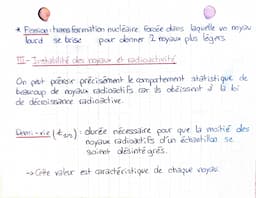 * Fission : transformation nucléaire forcée dans laquelle un noyau
lourd se brise pour donner 2 noyaux plus légers.
III - Instabilité des noyaux et radioactivité
On peut prévoir précisément le comportement statistique de
beaucoup de noyaux radioactifs car ils obéissent à la loi
de décroissance radioactive.
Demi-vie (t1/2) : durée nécessaire pour que la moitié des
noyaux radioactifs d'un échantillon se
soient désintégrés.
→ Cette valeur est caractéristique de chaque noyau.